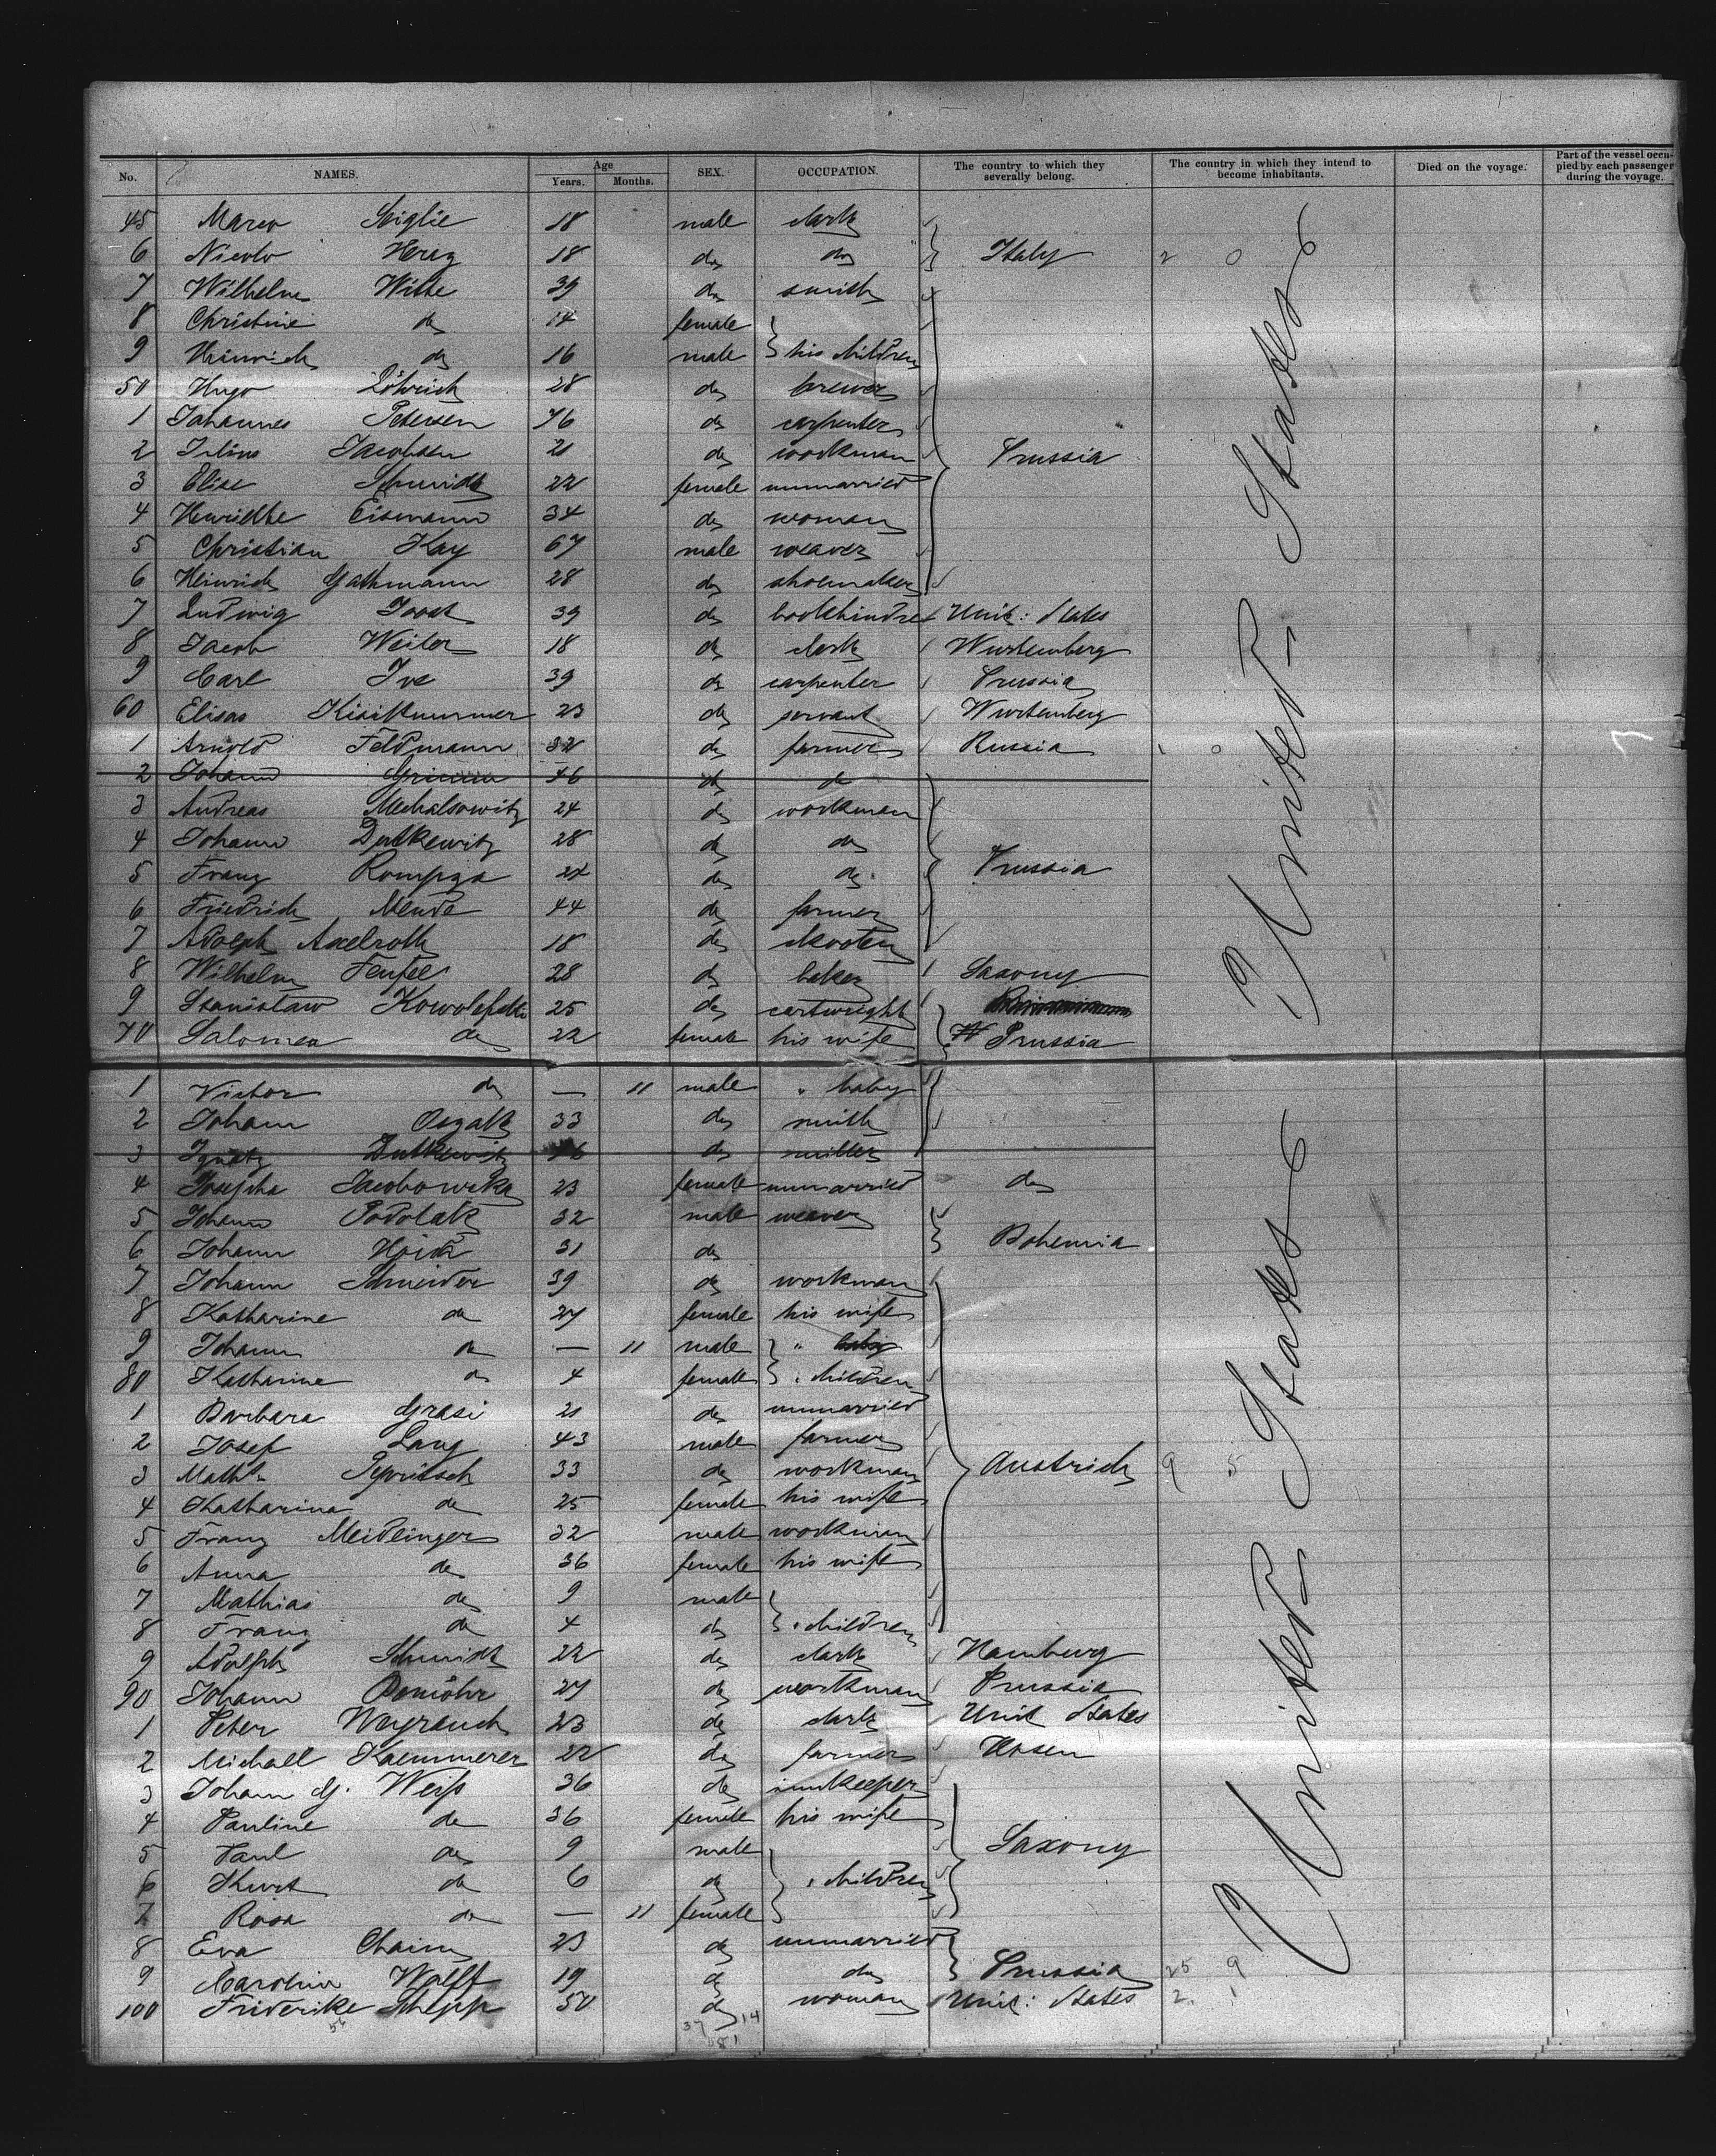 No. NAMES. Age Years. Months. SEX. OCCUPATION. The country to which they severally belong. The country in which they intend to become inhabitants. Died on the voyage. Part of the vessel occupied by each passenger during the voyage.
45 Marco Siglie 18 male clerk
6 Nicolo Herz 18 do do Italy 2 0
7 Wilhelm Witte 39 do smith
8 Christine do 14 female
9 Heinrich do 16 male his children
50 Hugo 28 do brewer
1 Johannes Petersen 76 do carpenter
2 Julius Jacobsen 21 do workman Prussia
3 Elise Schmidt 22 female unmarried
4 Henriette Eismann 34 do woman
5 Christian Kay 67 male weaver
6 Heinrich Gathmann 28 do shoemaker
7 Ludwig Joost 39 do bookbinder Unit: States
8 Jacob Weiler 18 do clerk Wurtemberg
9 Carl Ive 39 do carpenter Prussia
60 Elisas 23 do servant Wurtemberg
1 Arnold Feldmann 32 do farmer Russia 1 0
2 Johann Grimm 46 do do
3 Andreas Michalsowitz 24 do workman
4 Johann Dutkewitz 28 do do
5 Franz Rompza 24 do do Prussia
6 Friedrich Mende 44 do farmer
7 Adolph Axelroth 18 do
8 Wilhelm Teufel 28 do baker Saxony
9 Stanislaw 25 do cartwright
70 Salomea do 22 female his wife Prussia
United States
1 Victor do — 11 male " baby
2 Johann Oczak 33 do smith
3 Ignatz Dutkewitz do miller
4 Josepha Jacobowska 23 female unmarried do
5 Johann Podolak 32 male weaver
6 Johann 31 do Bohemia
7 Johann Schneider 39 do workman
8 Katharine do 27 female his wife
9 Johann do — 11 male " baby
80 Katharine do 4 female " children
1 Barbara Grasi 21 do unmarried
2 Josef Lang 43 male farmer
3 Mathˢ 33 do workman Austria 9 5
4 Katharina do 25 female his wife
5 Franz Meidlinger 32 male workman
6 Anna do 36 female his wife
7 Mathias do 9 male
8 Franz do 4 do " children
9 Adolph Schmidt 22 do clerk Hamburg
90 Johann 27 do workman Prussia
1 Peter Weyrauch 23 do clerk Unit States
2 Michael Kaemmerer 22 do farmer
3 Johann G. Weiß 36 do innkeeper
4 Pauline do 36 female his wife
5 Paul do 9 male Saxony
6 Kurt do 6 do " children
7 Rosa do — 11 female
8 Eva Chaim 23 do unmarried
9 Carolin Wolff 19 do do Prussia 25 9
100 Friderike Schepp 50 do woman Unit: States 2 1
United States
56 37 14
81